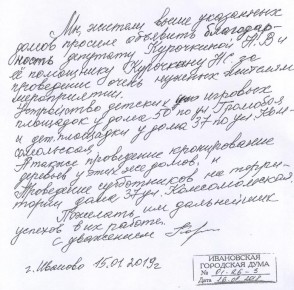 Мы, жители выше указанных
домов просим объявить благодар-
ность депутату Курочкиной Н.В и
её помощнику Курочкину
проведение очень нужных жителям
мероприятий.
Устройство детских игровых
площадок у дома 50 по ул Громобоя
и дет. площадки у дома 37 по ул. Ком-
сомольская.
А также проведение кронирование
деревьев у этих же домов; и
Проведение субботников на терри-
тории дома 37 ул. Комсомольская.
Пожелать им дальнейших
успехов в их работе.
с уважением
г. Иваново 15.01.2019г.
ИВАНОВСКАЯ
ГОРОДСКАЯ ДУМА
№
Дата